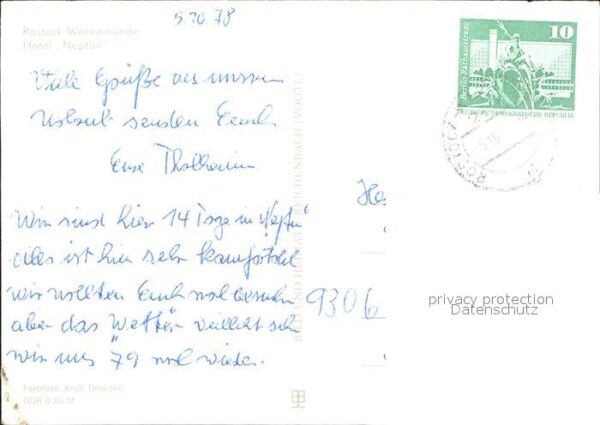 5 10 78
Rostock-Warnemünde
Hotel „Neptun"
Viele Grüße aus unserem
Urlaub senden Euch
Eure
Wir sind hier 14 Tage in „Neptun"
alles ist hier sehr komfortabel
wir wollten Euch mal besuchen
aber das Wetter vielleicht sehen
wir uns 79 mal wieder.
9306
Farbfoto: Knull, Dresden
DDR 0,20 M
BILD UND HEIMAT REICHENBACH (VOGTL)
10
DEUTSCHE DEMOKRATISCHE REPUBLIK
privacy protection
Datenschutz